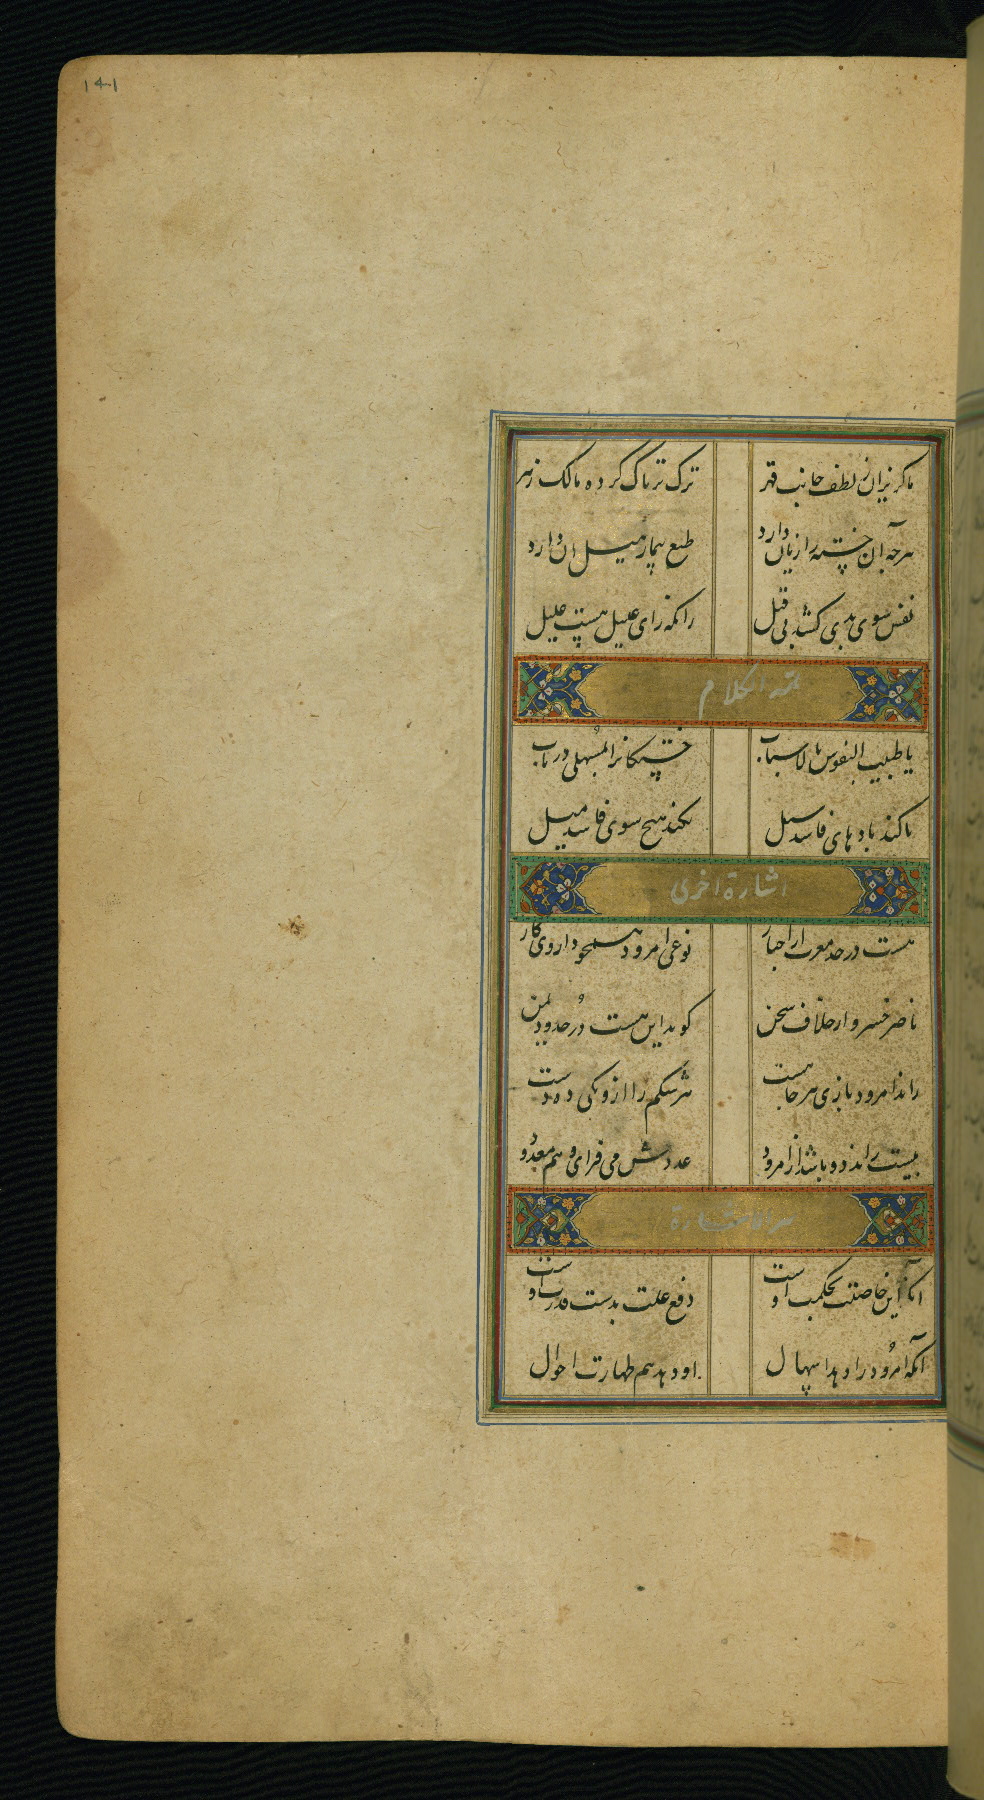 ۱۴۱
ما گریزان ز لطف جانب قهر ترک تریاک کرده مالک زهر
هرچه آن خسته را زیان دارد طبع بیمار میل آن دارد
نفس سوی بدی کشد بی قیل زانکه رای علیل هست علیل
تتمة الکلام
یا طبیب النفوس بالاسباب خستگانرا بمسهلی دریاب
تا کند بادهای فاسد سیل نکند هیچ سوی فاسد میل
اشارة اخری
هست در حد مغرب از اخبار نوعی امرود همچو داروی کار
ناصر خسرو از خلاف سخن گوید این هست در حدود یمن
راند امرود بازی هرجا هست هر شکم را از و یکی ده دست
بیست راند دو باشد از امرود عددش می فزای و هم معدود
سر الاشارة
آنکه این خاصیت بحکمت اوست دفع علت بدست قدرت اوست
آنکه امرود را دهد اسهال او دهد هم طهارت احوال